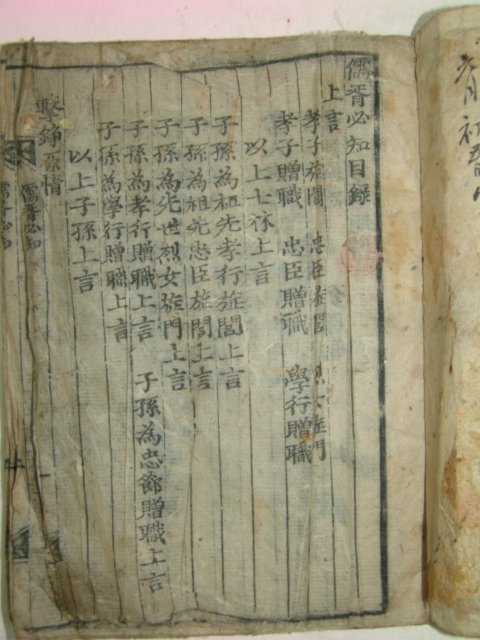 儒胥必知目錄
上言
孝子旌閭 忠臣旌閭 烈女旌門
孝子贈職 忠臣贈職 學行贈職
以上士林上言
子孫為祖先孝行旌閭上言
子孫為祖先忠臣旌閭上言
子孫為先世烈女旌門上言
子孫為孝行贈職上言 子孫為忠節贈職上言
子孫為學行贈職上言
以上子孫上言
擊錚原情
儒胥必知